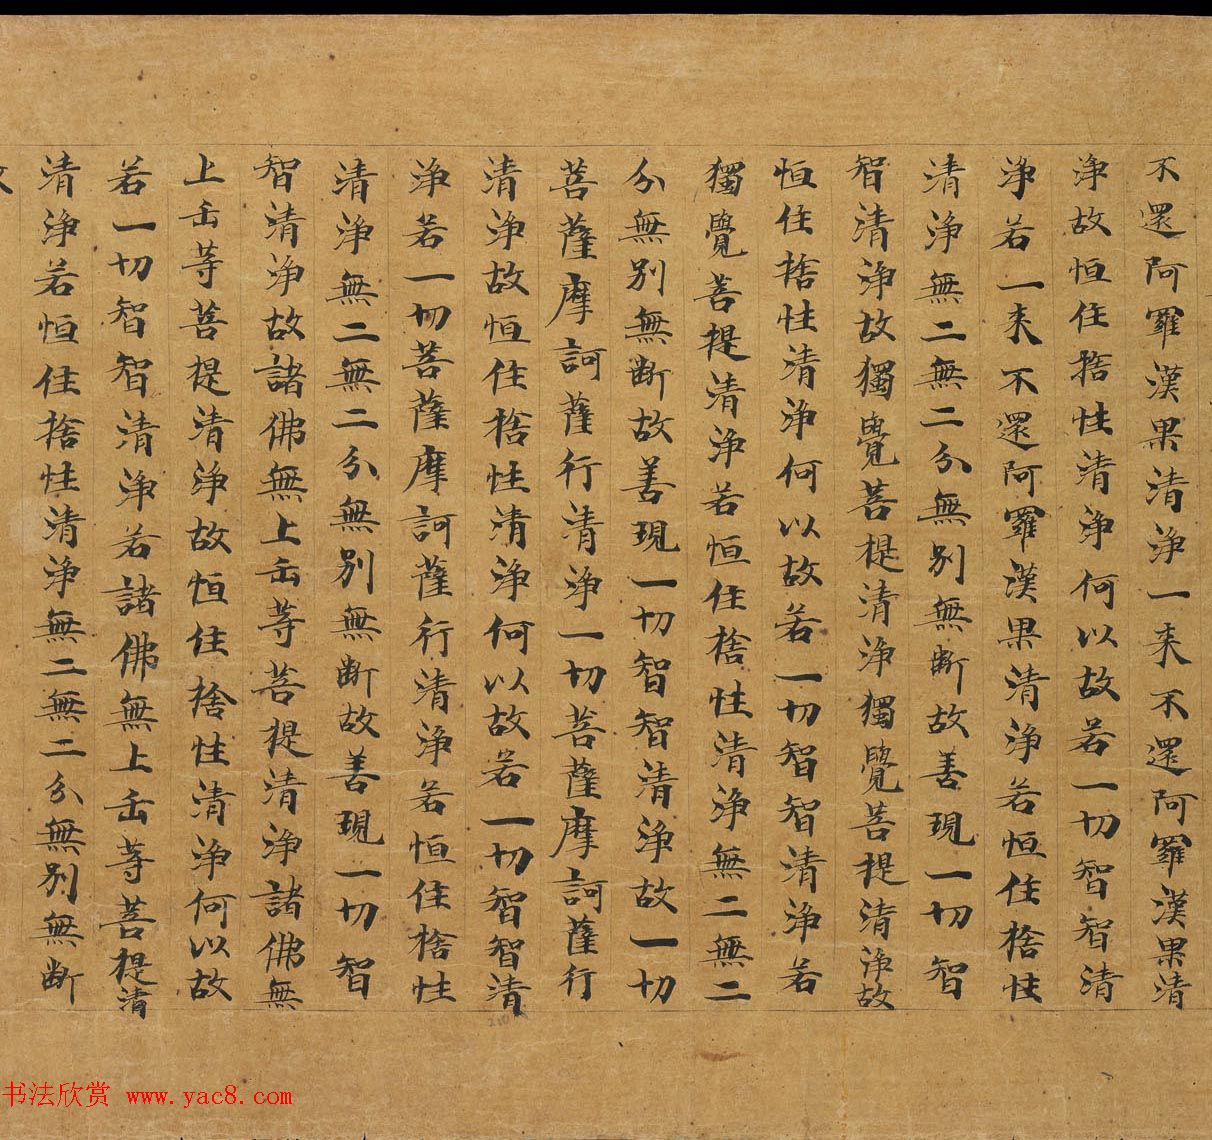 不還阿羅漢果清淨一来不還阿羅漢果清
淨故恒住捨性清淨何以故若一切智智清
淨若一来不還阿羅漢果清淨若恒住捨性
清淨無二無二分無別無断故善現一切智
智清淨故獨覺菩提清淨獨覺菩提清淨故
恒住捨性清淨何以故若一切智智清淨若
獨覺菩提清淨若恒住捨性清淨無二無二
分無別無断故善現一切智智清淨故一切
菩薩摩訶薩行清淨一切菩薩摩訶薩行
清淨故恒住捨性清淨何以故若一切智智清
淨若一切菩薩摩訶薩行清淨若恒住捨性
清淨無二無二分無別無断故善現一切智
智清淨故諸佛無上正等菩提清淨諸佛無
上正等菩提清淨故恒住捨性清淨何以故
若一切智智清淨若諸佛無上正等菩提清
淸淨若恒住捨性清淨無二無二分無別無断
书法欣赏 www.yac8.com